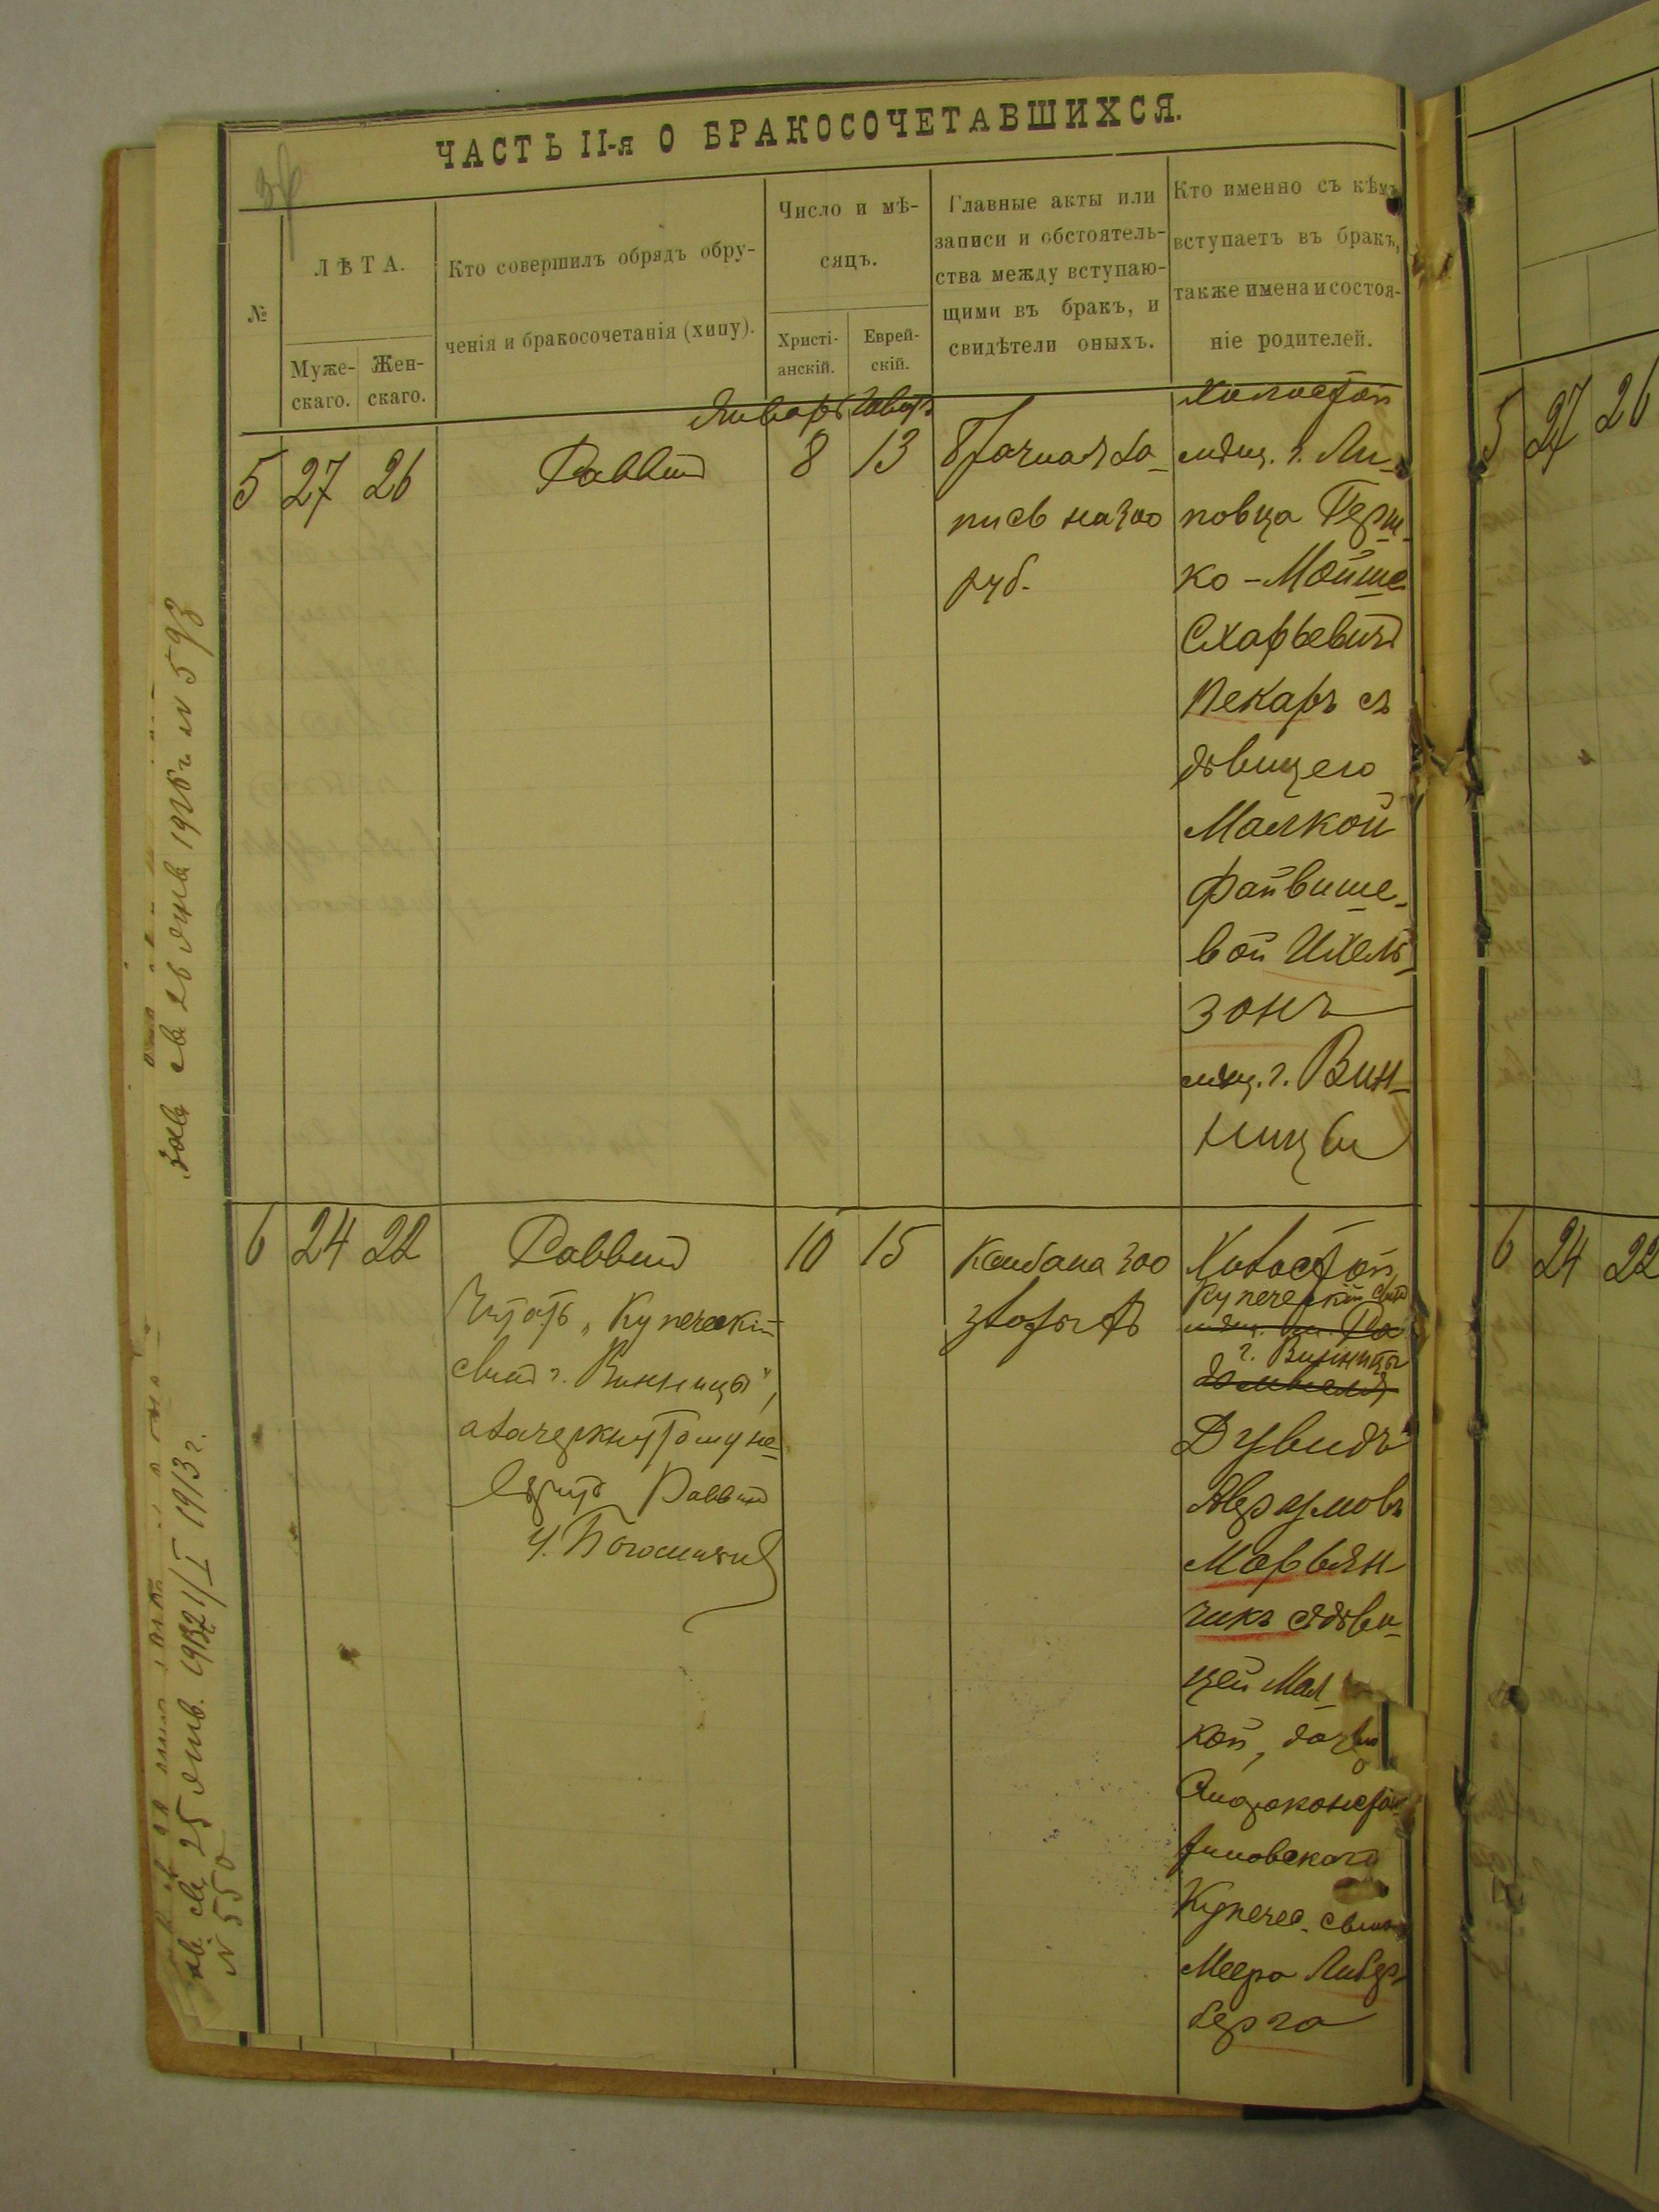 ЧАСТЬ II-я О БРАКОСОЧЕТАВШИХСЯ.
№
ЛѢТА.
Муже-
скаго.
Жен-
скаго.
Кто совершилъ обрядъ обру-
ченія и бракосочетанія (хипу).
Число и мѣ-
сяцъ.
Христі-
анскій.
Еврей-
скій.
Главные акты или
записи и обстоятель-
ства между вступаю-
щими въ бракъ, и
свидѣтели оныхъ.
Кто именно съ кѣмъ
вступаетъ въ бракъ,
также имена и состоя-
ніе родителей.
Январь
5 27 26
Раввинъ
8 13
пись на 300
руб.
Холостой
мѣщ. г. Ли-
повца Герш-
ко-Мойше
Схарьевичъ
Пекаръ съ
дѣвицею
Малкой
Файвише-
вой Ихель-
зонъ
мѣщ. г. Вин-
ницы
6 24 22
Раввинъ
Читать „Купеческій
сынъ г. Винницы",
а зачеркнутому не
вѣрить Раввинъ
10 15
Ктуба на 300
злотыхъ
Холостой
Купеческій сынъ
г. Винницы
Дувидъ
Аврумовъ
Марьян-
чикъ съ дѣви-
цей Мал-
кой, дочью
Староконстан-
тиновскаго
Купечес. сына
Меера Либер-
берга
25 янв. 1913 г.
N 550
N 593
5 27 26
6 24 22